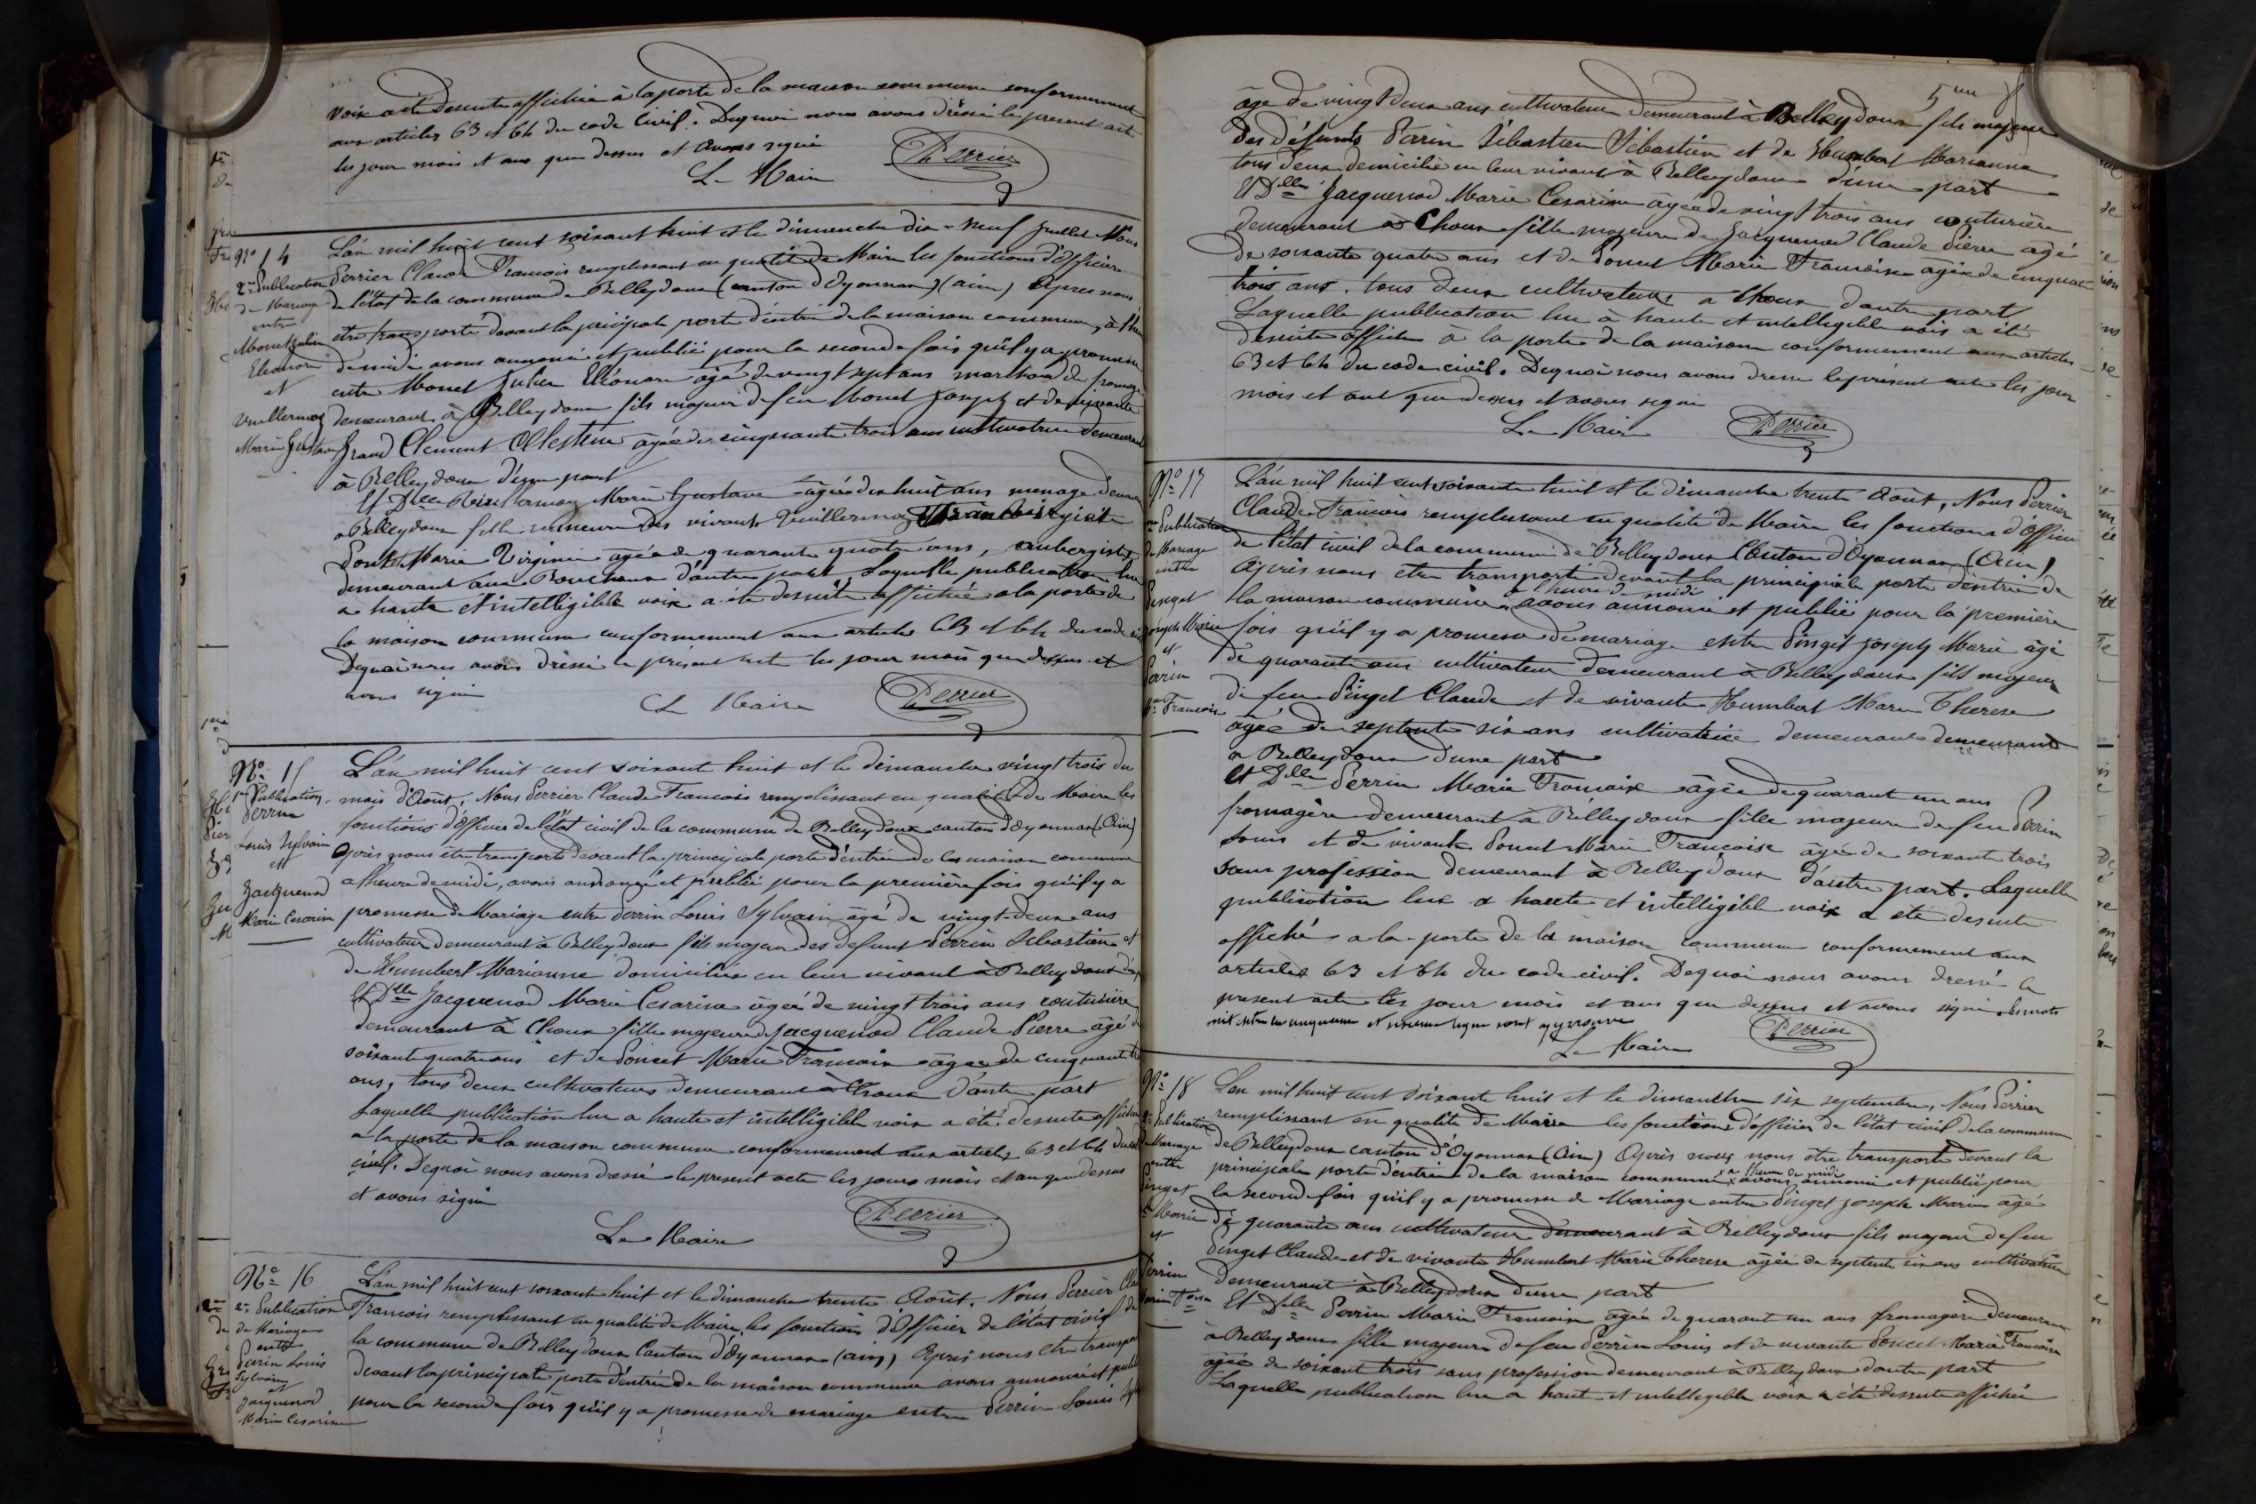 voix a été desuite affichée à la porte de la maison commune conformément
aux articles 63 et 64 du code Civil. Dequoi nous avons dressé le présent acte
les jour mois et ans que dessus et avons signé
Le Maire Perrier
No 14
2me Publication
de Mariage
entre
Monet Julien
Eléonore
et
Vuillermoz
Marie Gustave
L'an mil huit cent soixante huit et le dimanche dix-neuf Juillet Nous
Perrier Claude Francois remplissant en qualité de Maire les fonctions d'Officier
de l'état de la commune de Belleydoux (canton d'Oyonnax) (ain) Apres nous
etre transporté devant la principale porte d'entrée de la maison commune, à l'heure
de midi avons annoncé et publié pour la seconde fois qu'il y a promesse
entre Monet Julien Eléonore âgé de vingt sept ans marchand de fromage
demeurant à Belleydoux fils majeur de feu Monet Joseph et de vivante
Grand Clement Célestine âgée de cinquante trois ans cultivatrice demeurant
à Belleydoux d'une part
Et Dlle Marie Gustave âgée dix huit ans menage
à Belleydoux fille mineure des vivants Vuillermoz
Poncet Marie Virginie agée de quarante quatre ans, aubergistes
demeurant aux Bouchoux d'autre part, Laquelle publication lue
a haute et intelligible voix a été desuite affichée a la porte de
la maison commune conformement aux articles 63 et 64 du code
Dequoi nous avons dressé le présent acte les jour mois que dessus et
avons signé
Le Maire Perrier
No 15
1re Publication
Perrin
Louis Sylvain
et
Jacquenod
Marie Cesarine
L'an mil huit cent soixante huit et le dimanche vingt trois du
mois d'Août, Nous Perrier Claude Francois remplissant en qualité de Maire les
fonctions d'Officier de l'état civil de la commune de Belleydoux canton d'Oyonnax (Ain)
Après nous être transporté devant la principale porte d'entrée de la maison commune
a l'heure de midi, avons annoncé et publié pour la première fois qu'il y a
promesse de Mariage entre Perrin Louis Sylvain âgé de vingt-deux ans
cultivateur demeurant à Belleydoux fils majeur des defunt Perrin Sebastien et
de Humbert Marianne domiciliés en leur vivant à Belleydoux
Et Dlle Jacquenod Marie Cesarine âgée de vingt trois ans couturière
demeurant à Choux fille majeure de Jacquenod Claude Pierre âgé de
soixante quatre ans et de Poncet Marie Francoise âgée de cinquante
ans, tous deux cultivateurs demeurant à Choux d'autre part
Laquelle publication lue a haute et intelligible voix a été desuite affichée
a la porte de la maison commune conformement aux articles 63 et 64 du code
civil. Dequoi nous avons dressé le present acte les jours mois et an que dessus
et avons signé
Le Maire Perrier
No 16
2e Publication
de Mariage
entre
Perrin Louis
Sylvain
et
Jacquenod
Marie Cesarine
L'an mil huit cent soixante huit et le dimanche trente Août. Nous Perrier
Francois remplissant en qualité de Maire les fonctions d'Officier de l'état civil de
la commune de Belleydoux Canton d'Oyonnax (ain) Apres nous etre transporté
devant la principale porte d'entrée de la maison commune avons annoncé et publié
pour la seconde fois qu'il y a promesse de mariage entre Perrin Louis
5me
âgé de vingt deux ans cultivateur demeurant à Belleydoux fils majeur
des défunts Perrin Sébastien Sébastien et de Humbert Marianne
tous deux domicilié en leur vivant à Belleydoux d'une part
Et Dlle Jacquenod Marie Cesarine agée de vingt trois ans couturière
demeurant à Choux fille majeure de Jacquenod Claude Pierre agé
de soixante quatre ans et de Poncet Marie Francoise agée de cinquante
trois ans. tous deux cultivateurs a Choux d'autre part
Laquelle publication lue à haute et intelligible voix a été
desuite affichée à la porte de la maison conformement aux articles
63 et 64 du code civil. Dequoi nous avons dressé le présent acte les jour
mois et ans que dessus et avons signé
Le Maire Perrier
No 17
Publication
de Mariage
entre
Pinget
Joseph Marie
et
Perrin
Francoise
L'an mil huit cent soixante huit et le dimanche trente Août, Nous Perrier
Claude Francois remplissant en qualité de Maire les fonctions d'Officier
de l'état civil de la commune de Belleydoux Canton d'Oyonnax (Ain)
Après nous etre transporté devant la principale porte d'entrée de
à l'heure de midi
la maison commune avons annoncé et publié pour la première
fois qu'il y a promesse de mariage entre Pinget Joseph Marie âgé
de quarante ans cultivateur demeurant à Belleydoux fils majeur
de feu Pinget Claude et de vivante Humbert Marie Therese
âgée de septente six ans cultivatrice demeurant demeurant
a Belleydoux d'une part
Et Dlle Perrin Marie Francoise âgée de quarant un ans
fromagère demeurant à Belleydoux fille majeure de feu Perrin
Louis et de vivante Poncet Marie Francoise âgée de soixante trois
sans profession demeurant à Belleydoux d'autre part. Laquelle
publication lue a haute et intelligible voix a été desuite
affichée a la porte de la maison commune conformement aux
articles 63 et 64 du code civil. Dequoi nous avons dressé le
present acte les jour mois et ans que dessus et avons signé. les mots
mit entre la cinquieme et sixieme ligne sont approuvé
Le Maire Perrier
No 18
2e Publication
de Mariage
entre
Pinget
Marie
et
Perrin
L'an mil huit cent soixante huit et le dimanche six septembre, Nous Perrier
remplissant en qualité de Maire les fonctions d'officier de l'état civil de la commune
de Belleydoux canton d'Oyonnax (Ain) Après nous nous etre transporté devant la
x a l'heure de midi
principale porte d'entrée de la maison commune x avons annoncé et publié pour
la seconde fois qu'il y a promesse de Mariage entre Pinget Joseph Marie agé
de quarante ans cultivateur demeurant à Belleydoux fils majeur de feu
Pinget Claude et de vivante Humbert Marie Therese agée de septente six ans cultivatrice
demeurant à Belleydoux d'une part
Et Dlle Perrin Marie Francoise agée de quarant un ans fromagère demeurant
à Belleydoux fille majeure de feu Perrin Louis et de vivante Poncet Marie Francoise
agée de soixant trois sans profession demeurant à Belleydoux d'autre part
Laquelle publication lue a haut et intelligible voix a été desuite affichée